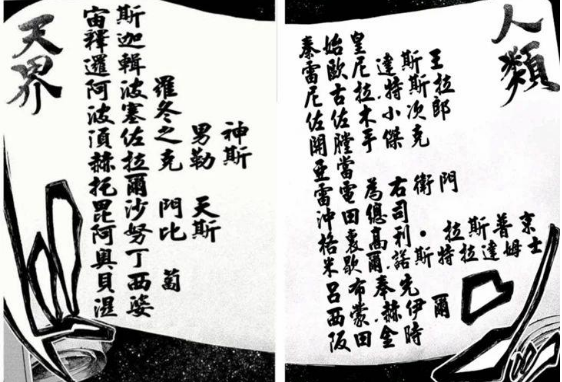 天界
宙斯
釋迦
邏輯
阿波羅
波塞冬
須佐之男神
赫拉克勒斯
托爾
毘沙門天
阿努比斯
奧丁
貝西蔔
溼婆
人類
秦始皇
雷歐尼達斯王
尼古拉·特斯拉
佐佐木小次郎
開膛手傑克
亞當
雷電為右衛門
沖田總司
格裏高利·拉斯普京
米歇爾·諾斯特拉達姆士
呂布奉先
西蒙·赫伊爾
阪田金時